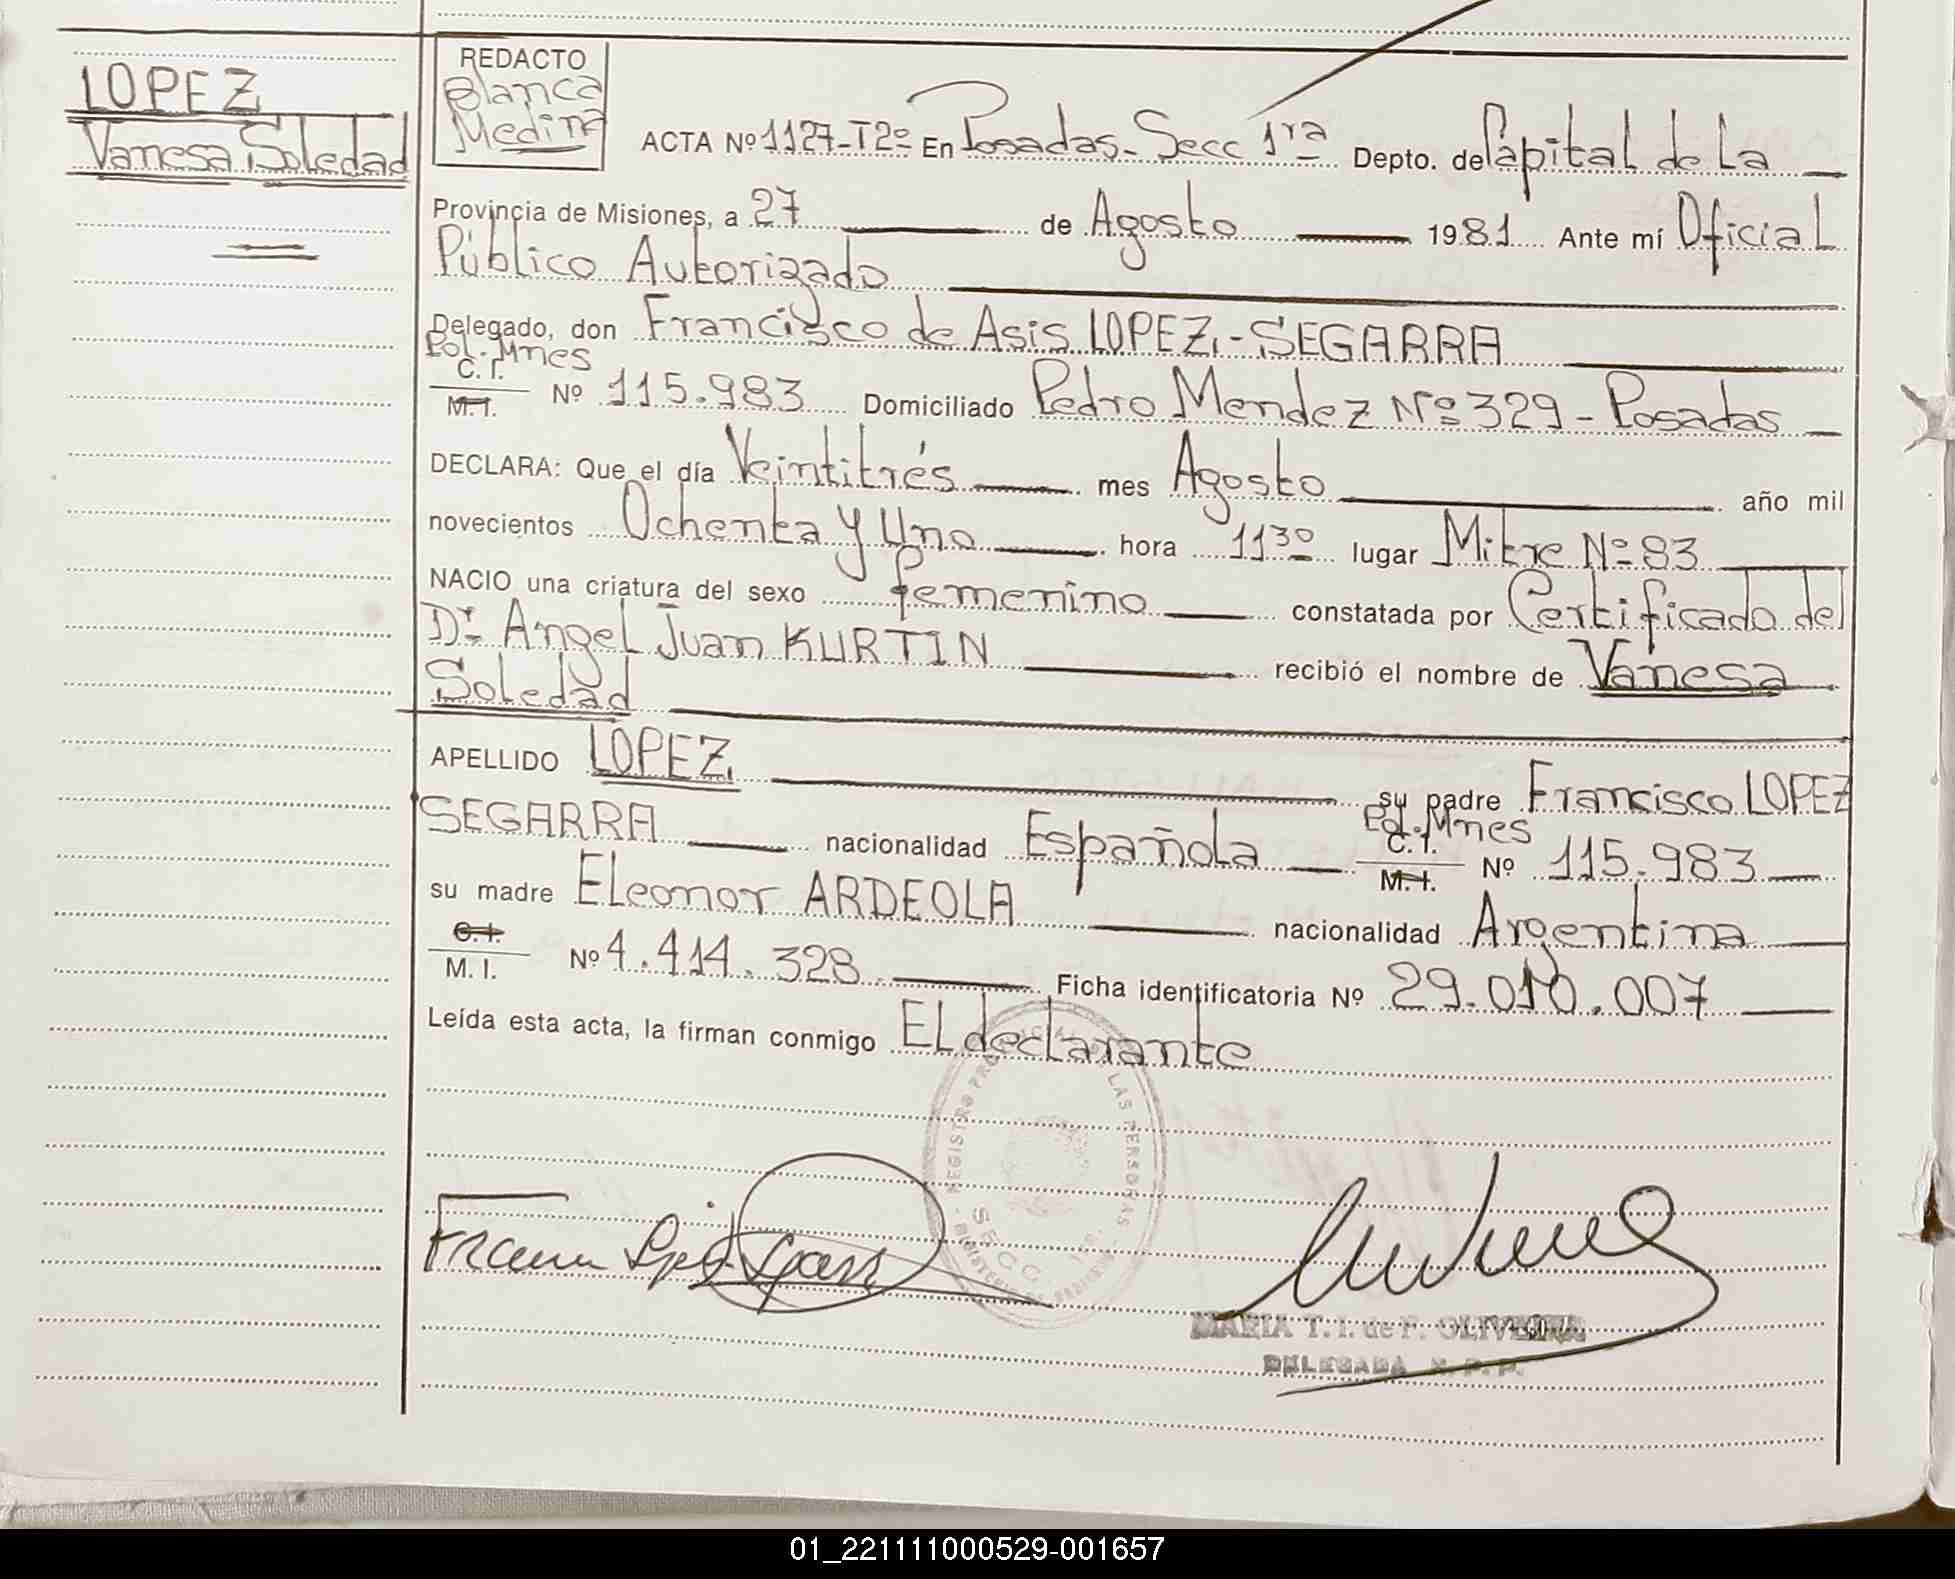 LOPEZ
Vanesa Soledad
REDACTO
Blanca
Medina
ACTA Nº 1127-T2º En Posadas- Secc 1ra Depto. de Capital de La
Provincia de Misiones, a 27 de Agosto 1981 Ante mí Oficial
Público Autorizado
Delegado, don Francisco de Asis LOPEZ.-SEGARRA
Pol. Mnes
C. I.
M. I. Nº 115.983 Domiciliado Pedro Mendez Nº 329 - Posadas
DECLARA: Que el día Veintitrés mes Agosto año mil
novecientos Ochenta y Uno hora 11 30 lugar Mitre Nº 83
NACIO una criatura del sexo femenino constatada por Certificado del
Dr. Angel Juan KURTIN recibió el nombre de Vanesa
Soledad
APELLIDO LOPEZ su padre Francisco LOPEZ
SEGARRA nacionalidad Española Pol. Mnes C. I. M. I. Nº 115.983
su madre Eleonor ARDEOLA nacionalidad Argentina
C. I.
M. I. Nº 4.414.328 Ficha identificatoria Nº 29.010.007
Leída esta acta, la firman conmigo El declarante
REGISTRO PROVINCIAL DE LAS PERSONAS
SECC. 1
MARIA T. I. de F. OLIVEIRA
DELEGADA R. P. P.
01_221111000529-001657